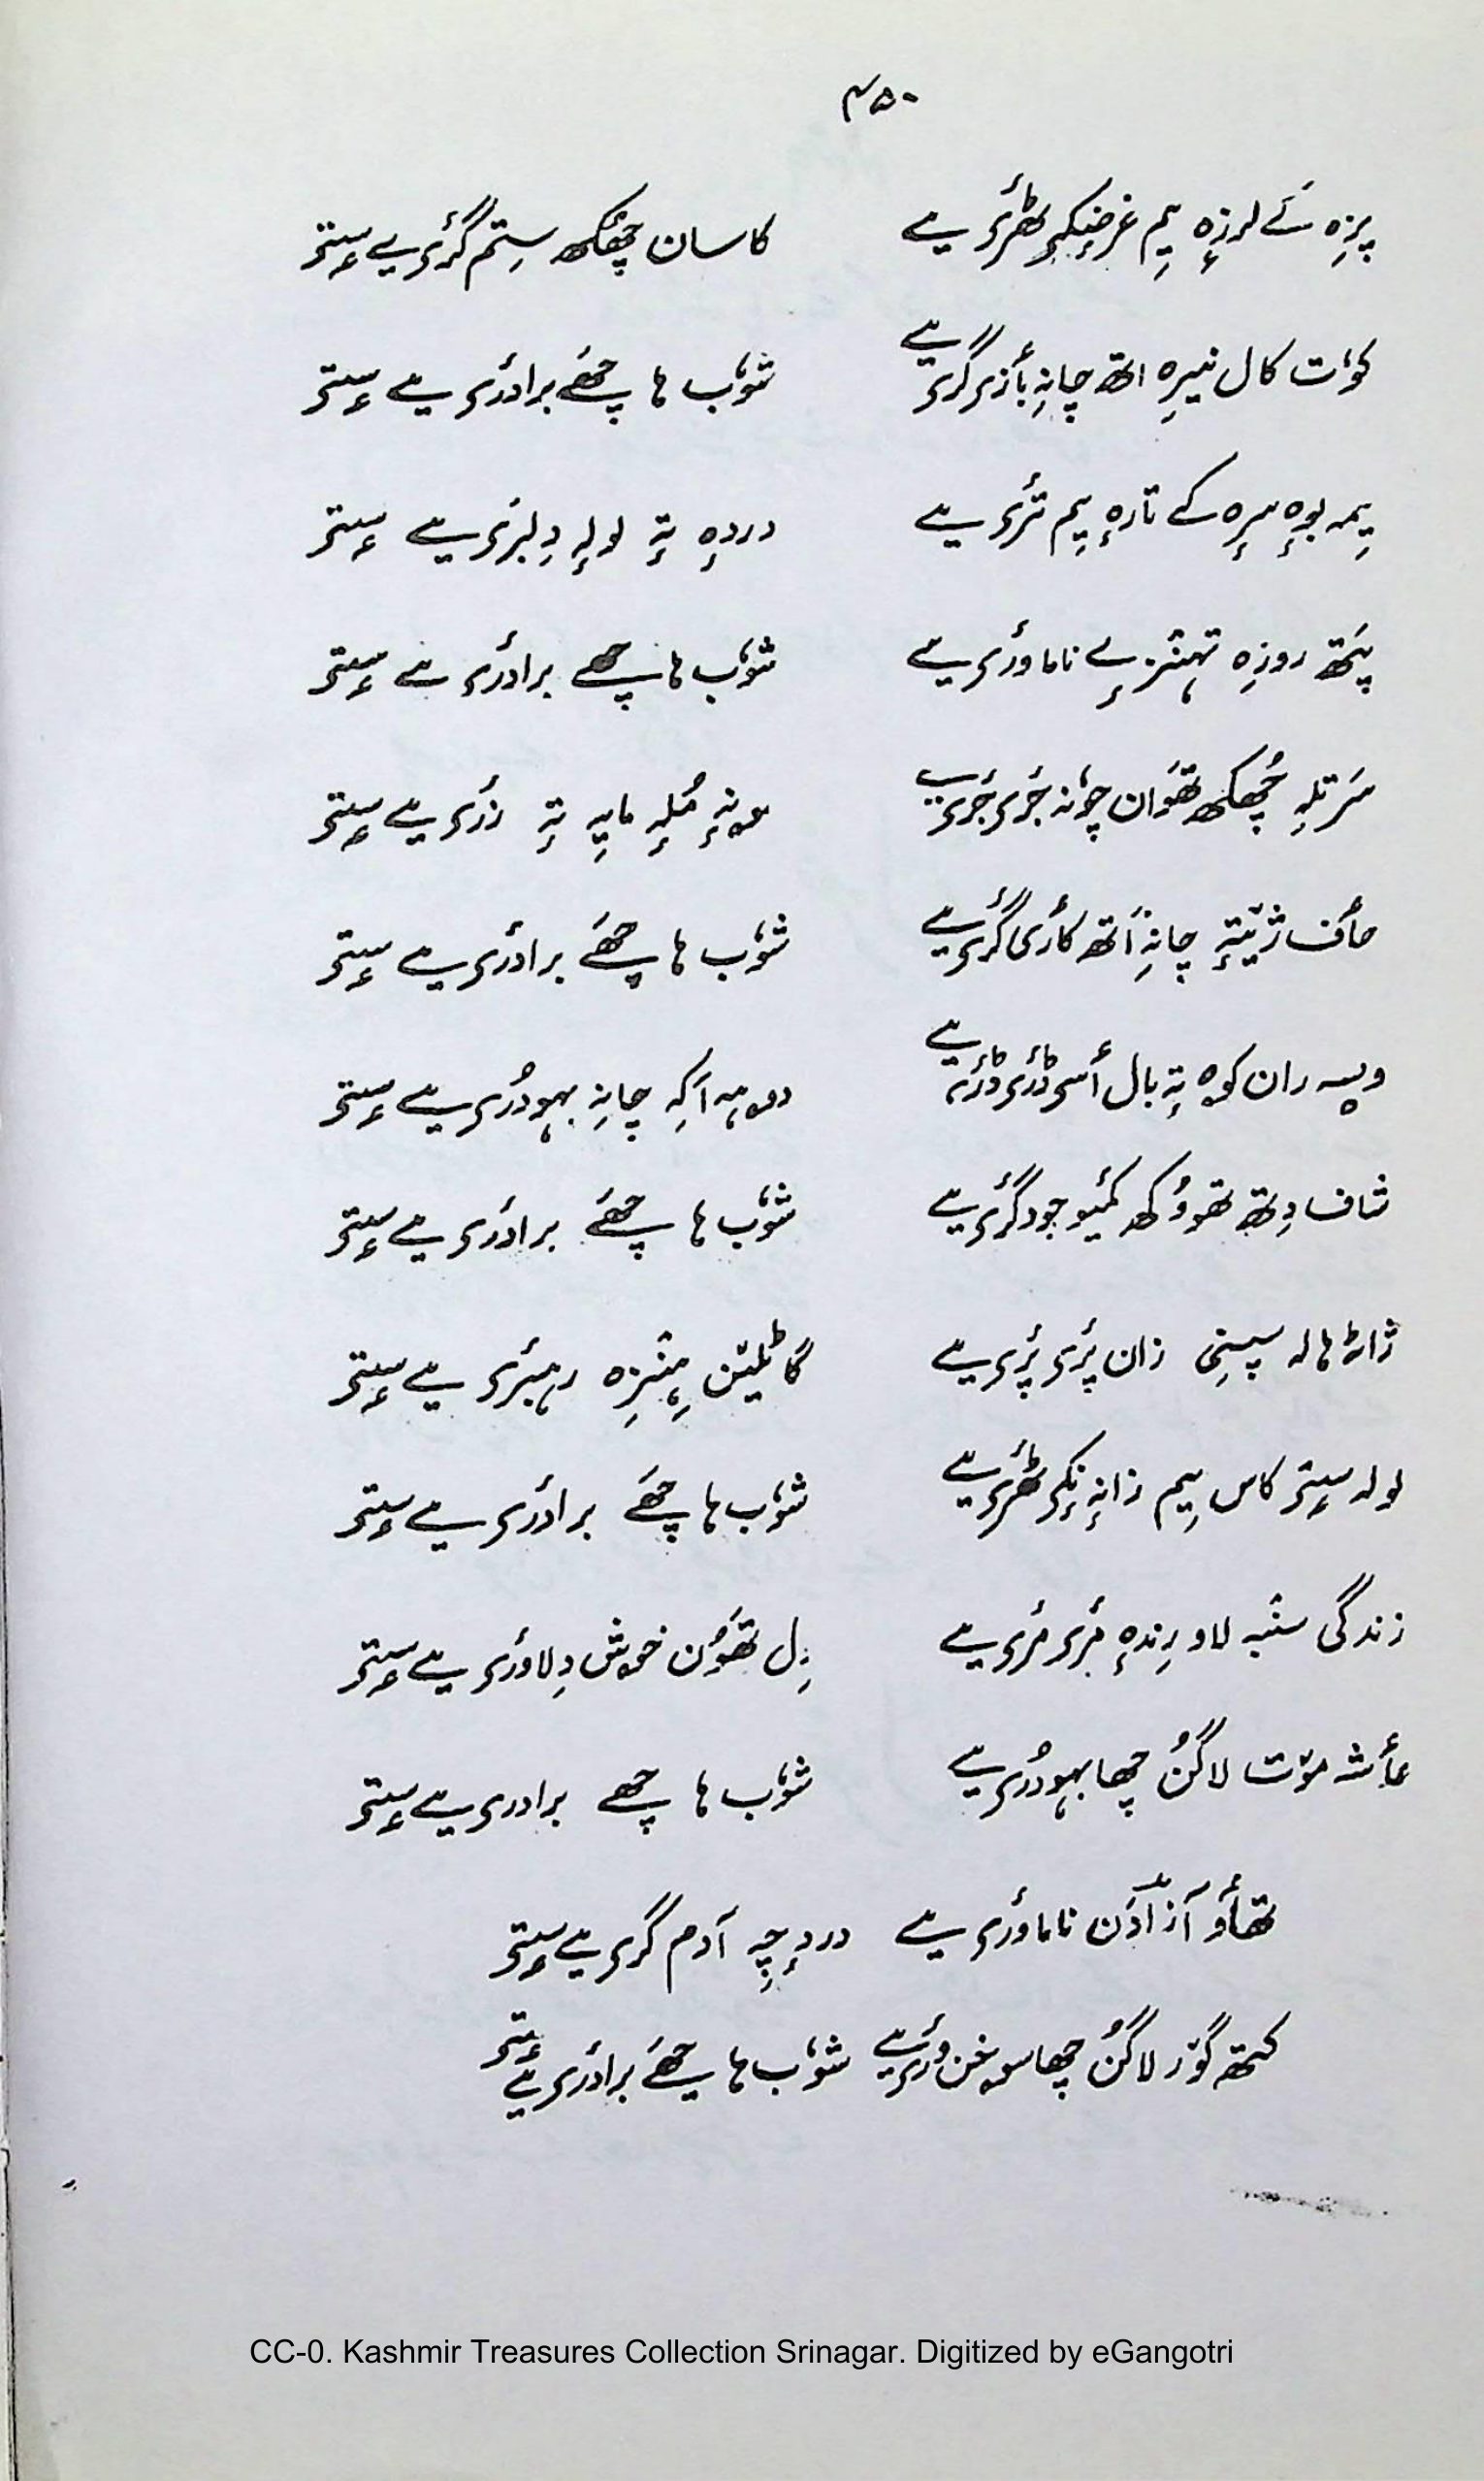 ۴۵۰
پزِہ سَے لرزٕہ یِم غرضٕکۍ ٹھٔرۍ یے کاسان چھُکھ سِتم گٔرۍ یے سۭتۍ
کوٗت کال نیرِہ اتھ چانہِ بٲزۍ گرۍ یے شوٗب ہا چھَے برادٔری یے سۭتۍ
یِمہ بوٕہ سرٕہ کے تارٕہ یِم تٔرۍ یے دردٕہ تہٕ لولہٕ دِلبٔری یے سۭتۍ
پَتھ روزِہ تہٕنزیے ناماؤری یے شوٗب ہا چھے برادٔری یے سۭتۍ
سَرتلہِ چھُکھ تھَوان چوٗنہ جٔرۍ جٔرۍ یے سونہٕ مُلہٕ مایہِ تہٕ زٔرۍ یے سۭتۍ
حٲف ژٔیتہٕ چانہِ اَتھ کٲری گٔری یے شوٗب ہا چھَے برادٔری یے سۭتۍ
ویسہ ران کوہ تہٕ بال أسۍ ڈٔرۍ ڈٔرۍ یے دوہہ اَکہِ چانہِ بہودُری یے سۭتۍ
شاف دِتھ تھووُکھ کمیو جودگٔری یے شوٗب ہا چھَے برادٔری یے سۭتۍ
ژاٹہٕ ہالہ سپنۍ زان پٔرۍ پٔرۍ یے گاٹلیَن ہٕنزِہ رہبٔری یے سۭتۍ
لولہ سۭتۍ کاس یِم زانہٕ نکۍ ٹھٔرۍ یے شوٗب ہا چھَے برادٔری یے سۭتۍ
زندگی سنٛبہ لاو رِندٕہ مٔرۍ مٔرۍ یے دِل تھَوُن خوش دِلاؤری یے سۭتۍ
عٲشہ موٚت لاگُن چھا بہودُری یے شوٗب ہا چھے برادری یے سۭتۍ
تھٲو آزادَن ناماؤری یے دردٕچہِ آدم گری یے سۭتۍ
کتھ گوٚر لاگُن چھا سوخن ؤری یے شوٗب ہا چھَے برادٔری یے سۭتۍ
CC-0. Kashmir Treasures Collection Srinagar. Digitized by eGangotri